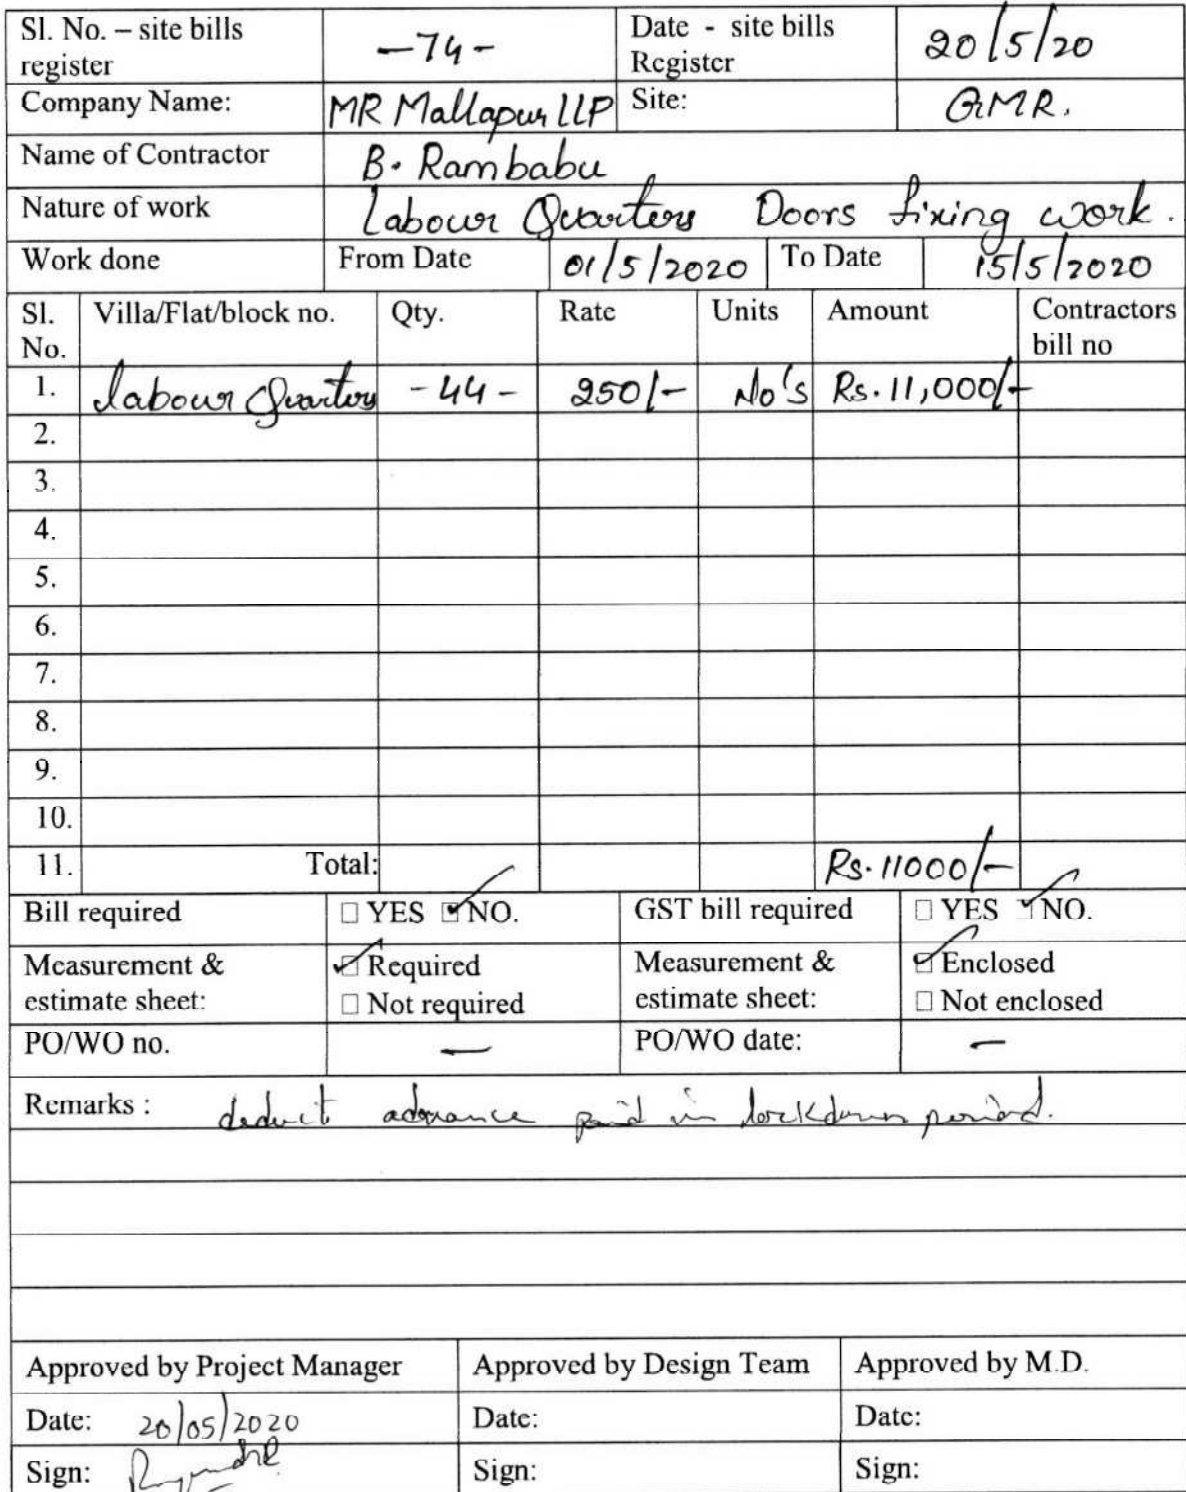 Sl. No. – site bills register -74- Date - site bills Register 20/5/20
Company Name: MR Mallapur LLP Site: GMR.
Name of Contractor B. Rambabu
Nature of work Labour Quarters Doors fixing work.
Work done From Date 01/5/2020 To Date 15/5/2020
Sl. No. Villa/Flat/block no. Qty. Rate Units Amount Contractors bill no
1. labour Quarters -44- 250/- No's Rs. 11,000/-
2.
3.
4.
5.
6.
7.
8.
9.
10.
11. Total: Rs. 11000/-
Bill required □ YES ☑ NO. GST bill required □ YES ☑ NO.
Measurement & estimate sheet: ☑ Required □ Not required Measurement & estimate sheet: ☑ Enclosed □ Not enclosed
PO/WO no. — PO/WO date: —
Remarks : deduct advance paid in lockdown period.
Approved by Project Manager Approved by Design Team Approved by M.D.
Date: 20/05/2020 Date: Date:
Sign: Sign: Sign: